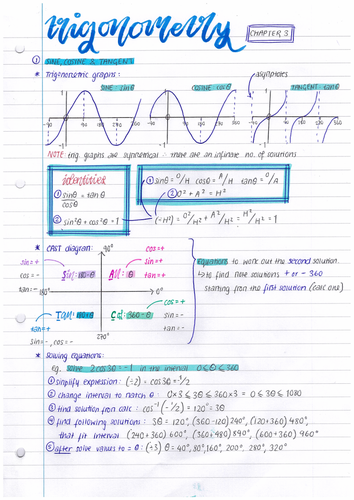 trigonometry
CHAPTER 3
① SINE, COSINE & TANGENT
* Trigonometric graphs:
asymptotes
SINE sinθ
COSINE cosθ
TANGENT tanθ
NOTE trig. graphs are symmetrical : there are an infinite no. of solutions
identities
① sinθ = tanθ
cosθ
② sin²θ + cos²θ = 1
① sinθ = O/H cosθ = A/H tanθ = O/A
② O² + A² = H²
(÷H²) = O²/H² + A²/H² = H²/H² = 1
* CAST diagram:
90°
cos=-
sin=+
sin=+
cos=-
tan=-
Sin: 180-θ
All: θ
tan=+
180°
0°
Tan: 180+θ
Cos: 360-θ
cos=+
sin=-
tan=-
tan=+
sin=-, cos=-
270°
Equations to work out the second solution.
↳ to find next solutions + or - 360
starting from the first solution (calc one)
* Solving equations:
eg. solve 2cos3θ = -1 in the interval 0≤θ≤360
① simplify expression: (÷2) = cos3θ = -1/2
② change interval to match θ: 0×3≤3θ≤360×3 = 0≤3θ≤1080
③ find solution from calc: cos⁻¹(-1/2) = 120° = 3θ
④ find following solutions: 3θ = 120°, (360-120) 240°, (120+360) 480°,
that fit interval (240+360) 600°, (360+480) 840°, (600+360) 960°
⑤ after solve values to = θ: (÷3) θ = 40°, 80°, 160°, 200°, 280°, 320°